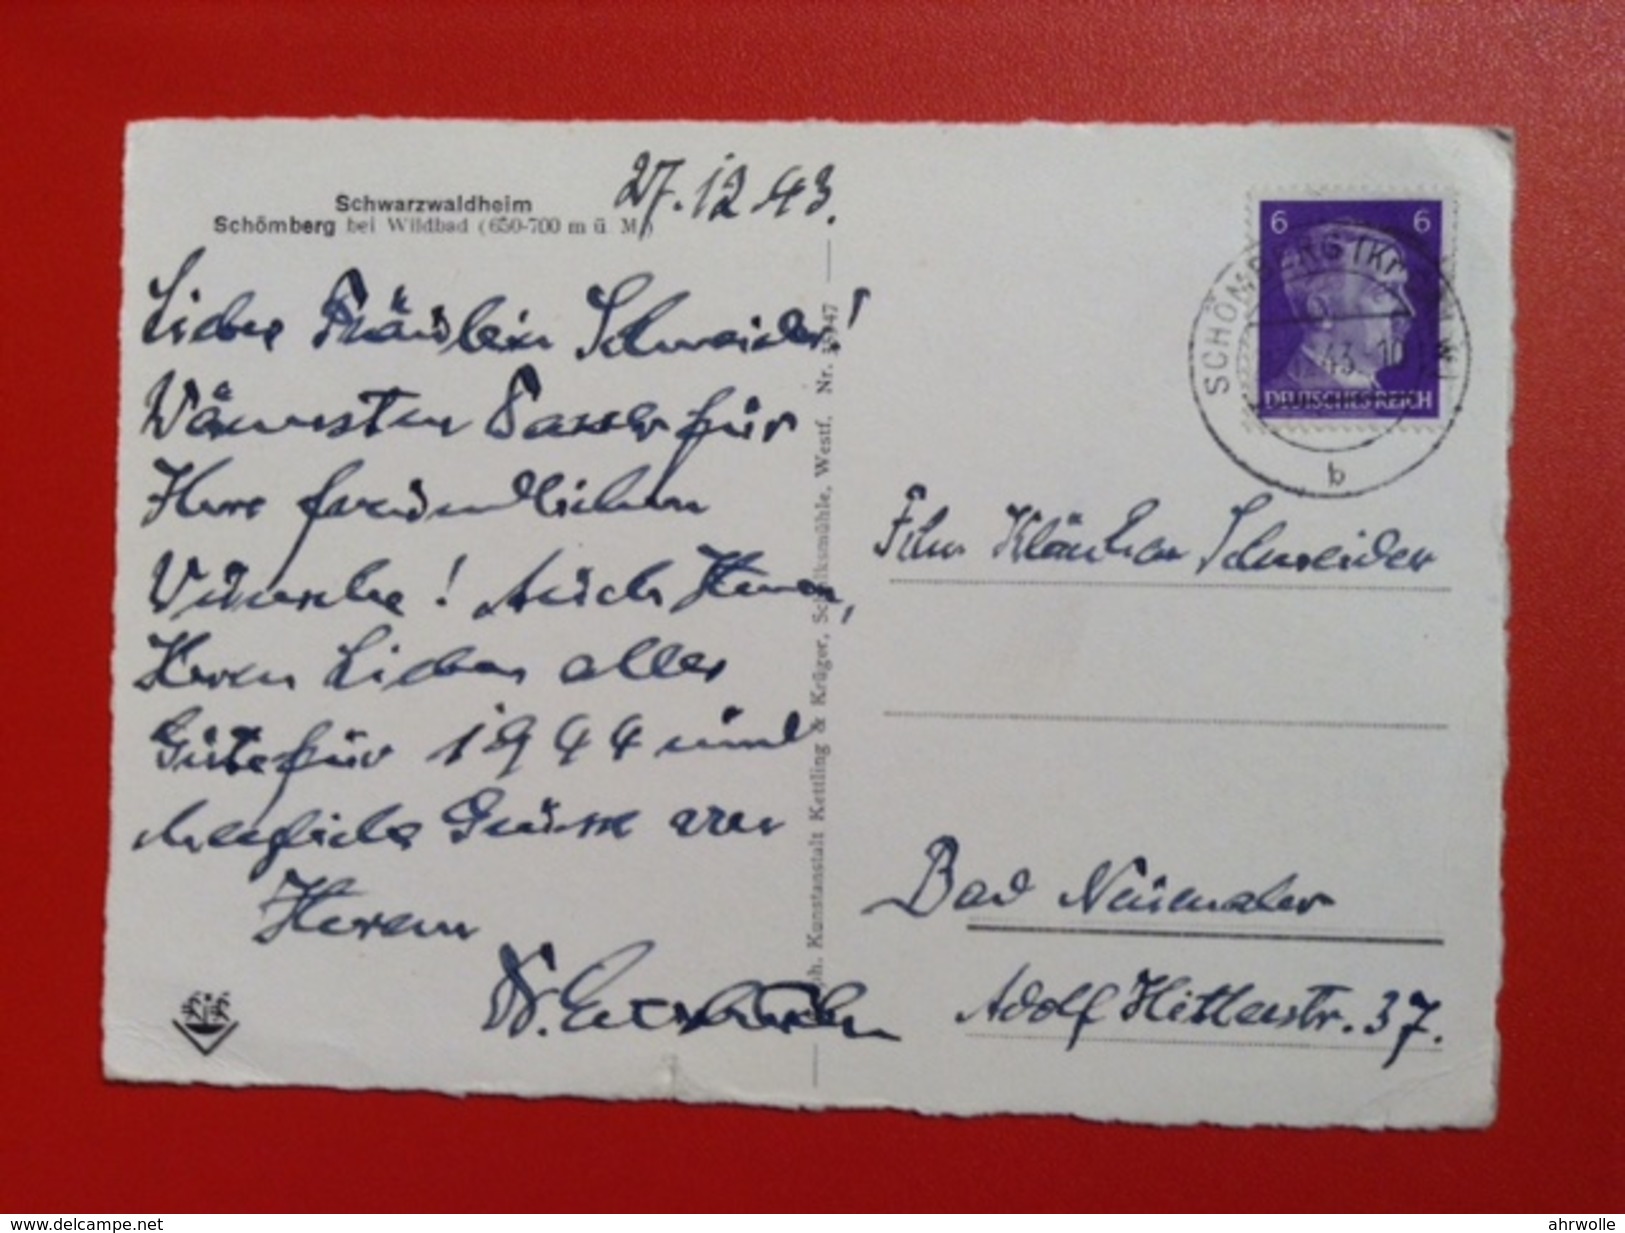 Schwarzwaldheim
Schömberg bei Wildbad (650-700 m ü. M.)
27.12.43.
Liebes Fräulein Schneider!
Wärmsten Dank für
Ihre freundlichen
Wünsche! Auch Ihnen,
Ihren Lieben alles
Gute für 1944 und
herzliche Grüsse von
Ihrem
Dr.
Kunstanstalt Kettling & Krüger, Schalksmühle, Westf. Nr.
6 6
DEUTSCHES REICH
SCHÖMBERG (Kr.
43. 10
b
Frln Klärchen Schneider
Bad Neuenahr
Adolf Hitlerstr. 37.
www.delcampe.net
ahrwolle